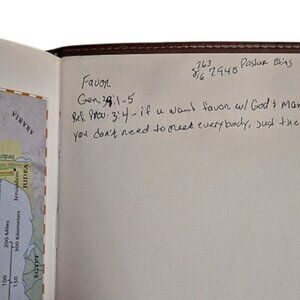 263
8/6 2940 Pastor
Favor
Gen 39:1-5
Ref. Prov. 3:4 - if u want favor w/ God & Man
you don't need to meet everybody, just the
ARABIA
Jordan
Jerusalem
JUDEA
EGYPT
200 Miles
300 Kilometers
100
100